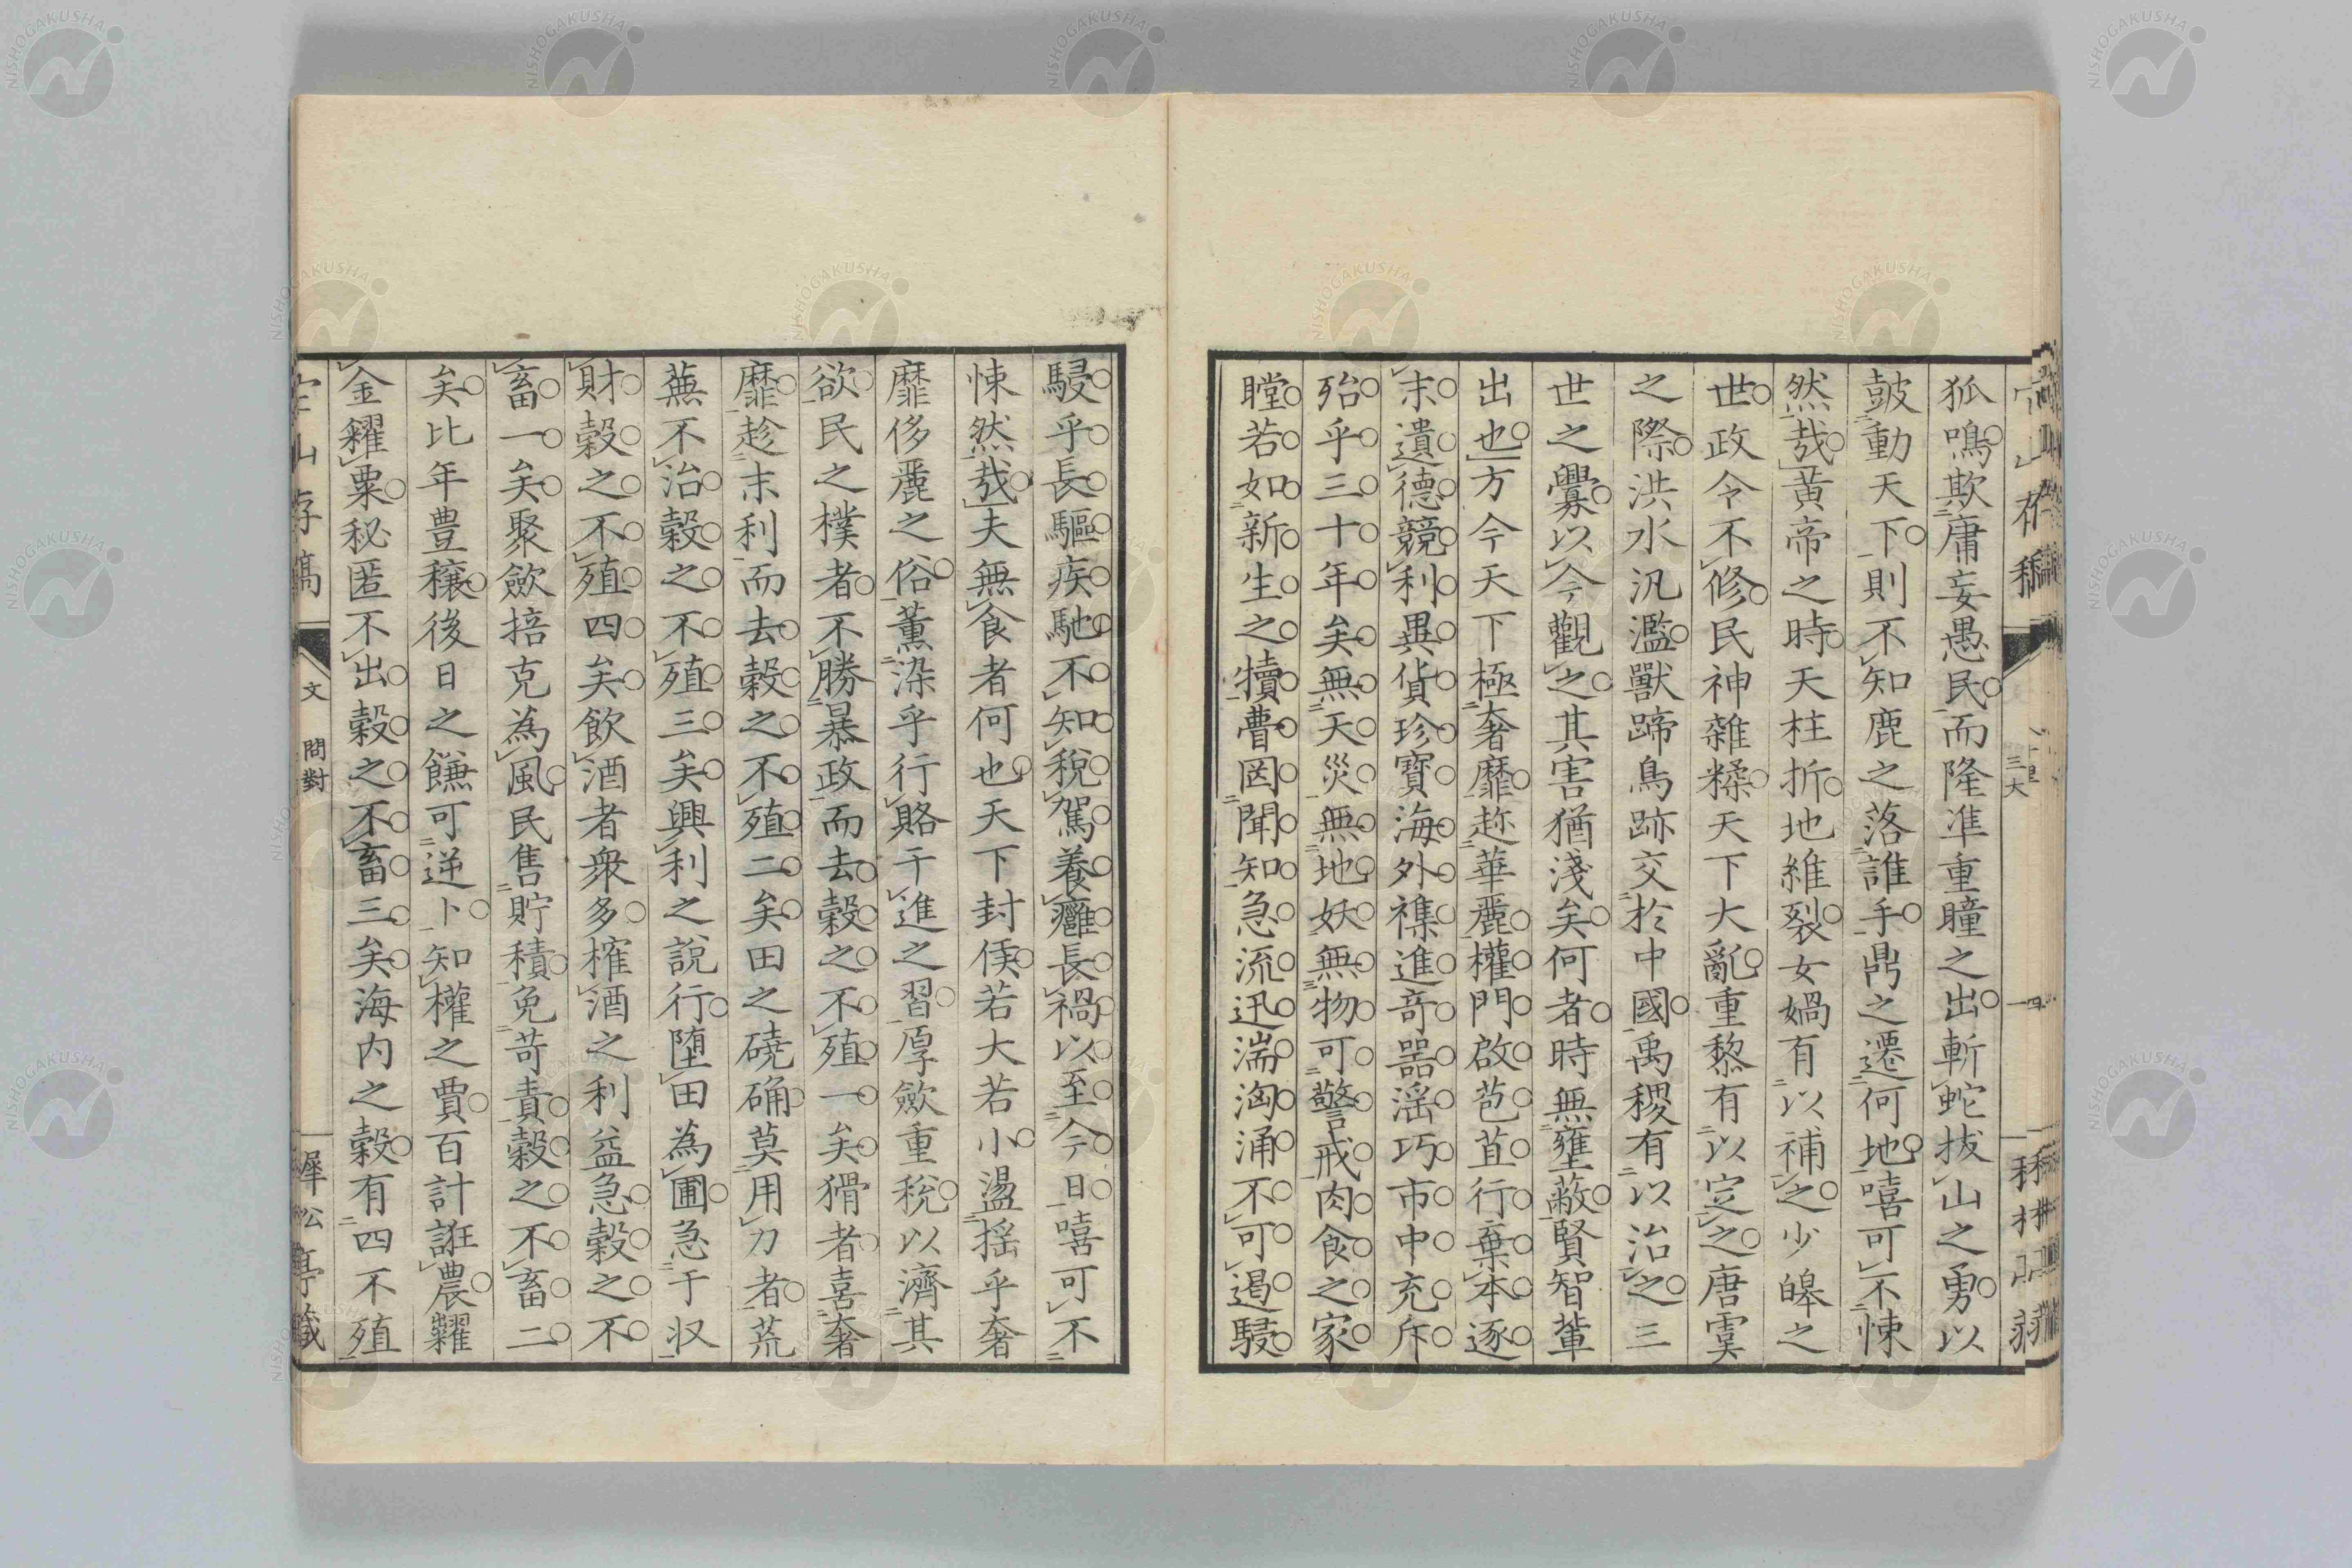 狐鳴欺庸妄愚民而隆準重瞳之出斬蛇拔山之勇以
鼓動天下則不知鹿之落誰手鼎之遷何地嘻可不悚
然哉黃帝之時天柱折地維裂女媧有以補之少皞之
世政令不修民神雜糅天下大亂重黎有以定之唐虞
之際洪水汎濫獸蹄鳥跡交於中國禹稷有以治之三
世之釁以今觀之其害猶淺矣何者時無壅蔽賢智輩
出也方今天下極奢靡趂華麗權門啟苞苴行棄本逐
末遺德競利異貨珍寶海外襍進奇器滛巧市中充斥
殆乎三十年矣無天災無地妖無物可警戒肉食之家
瞠若如新生之犢瞢罔聞知急流迅湍洶涌不可遏駸
駸乎長驅疾馳不知稅駕養癰長禍以至今日嘻可不
悚然哉夫無食者何也天下封侯若大若小盪搖乎奢
靡侈麗之俗薰染乎行賂干進之習厚歛重稅以濟其
欲民之樸者不勝暴政而去穀之不殖一矣猾者喜奢
靡趁末利而去穀之不殖二矣田之磽确莫用力者荒
蕪不治穀之不殖三矣興利之說行墮田為圃急于収
財穀之不殖四矣飲酒者衆多榷酒之利益急穀之不
畜一矣聚歛掊克為風民售貯積免苛責穀之不畜二
矣比年豊穰後日之饑可逆卜知權之賈百計誑農糶
金糴粟秘匿不出穀之不畜三矣海內之穀有四不殖
宕山存稿 文 問對 犀松亭藏
NISHOGAKUSHA